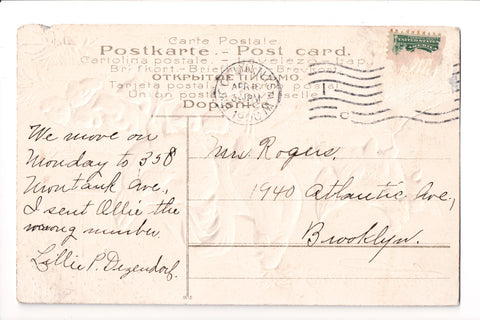 Carte Postale.
Postkarte. - Post card.
Cartolina postale. -
Brefkort -
ОТКРЫТОЕ ПИСЬМО
Tarjeta postal
Union postale
Dopisnice
We move on
Monday to 358
Montauk Ave.,
I sent Ollie the
wrong number.
Lillie P. Degendorf.
Mrs. Rogers,
1940 Atlantic Ave.,
Brooklyn.